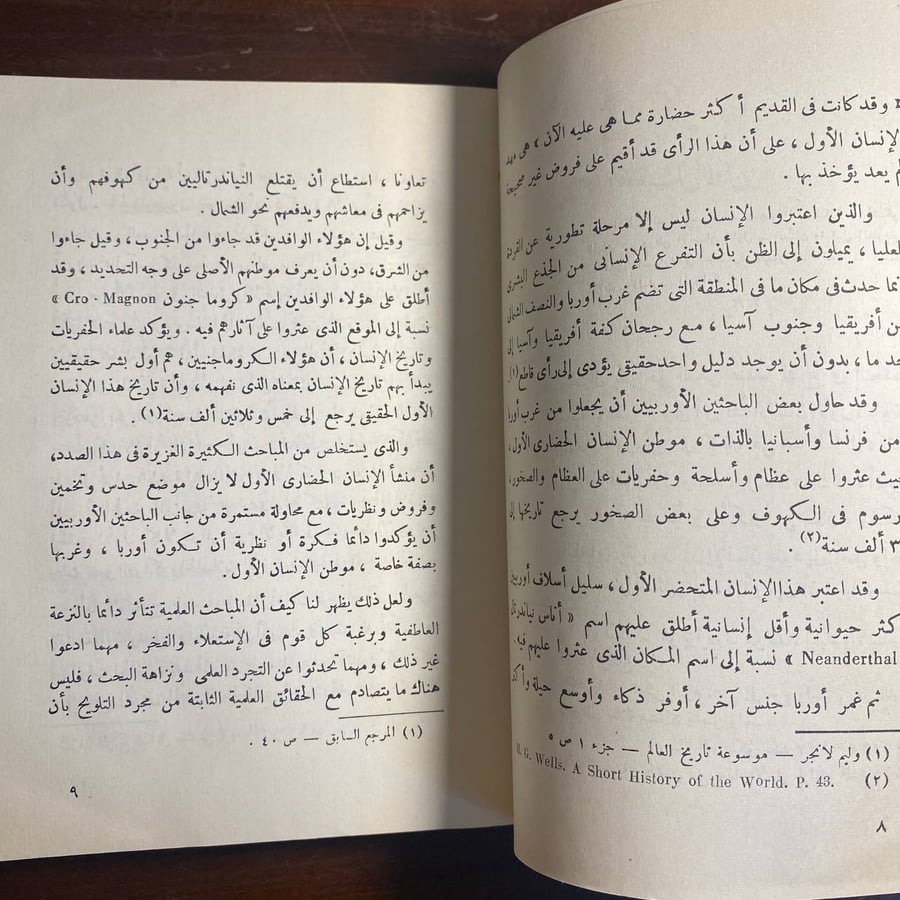 « وقد كانت فى القديم أكثر حضارة مما هى عليه الآن » هى مهد
الإنسان الأول ، على أن هذا الرأى قد أقيم على فروض غير صحيحة
لم يعد يؤخذ بها .
والذين اعتبروا الإنسان ليس إلا مرحلة تطورية عن القردة
العليا ، يميلون إلى الظن بأن التفرع الإنسانى من الجذع البشرى
إنما حدث فى مكان ما فى المنطقة التى تضم غرب أوربا والنصف الشمالى
من أفريقيا وجنوب آسيا ، مع رجحان كفة أفريقيا وآسيا إلى
حد ما ، بدون أن يوجد دليل واحد حقيقى يؤدى إلى رأى قاطع (١).
وقد حاول بعض الباحثين الأوربيين أن يجعلوا من غرب أوربا
من فرنسا وأسبانيا بالذات ، موطن الإنسان الحضارى الأول ،
حيث عثروا على عظام وأسلحة وحفريات على العظام والصخور ،
رسوم فى الكهوف وعلى بعض الصخور يرجع تاريخها إلى
ألف سنة (٢) .
وقد اعتبر هذا الإنسان المتحضر الأول ، سليل أسلاف أوربيين
أكثر حيوانية وأقل إنسانية أطلق عليهم اسم « أناس نياندرتال
Neanderthal » نسبة إلى اسم المكان الذى عثروا عليهم فيه .
ثم غمر أوربا جنس آخر ، أوفر ذكاء وأوسع حيلة وأكثر
(١) وليم لانجر — موسوعة تاريخ العالم — جزء ١ ص ٥
(٢) H. G. Wells. A Short History of the World. P. 43.
٨
تعاونا ، استطاع أن يقتلع النياندرتاليين من كهوفهم وأن
يزاحمهم فى معاشهم ويدفعهم نحو الشمال .
وقيل إن هؤلاء الوافدين قد جاءوا من الجنوب ، وقيل جاءوا
من الشرق، دون أن يعرف موطنهم الأصلى على وجه التحديد ، وقد
أطلق على هؤلاء الوافدين إسم « كروما جنون Cro - Magnon »
نسبة إلى الموقع الذى عثروا على آثارهم فيه . ويؤكد علماء الحفريات
وتاريخ الإنسان ، أن هؤلاء الكروماجنيين ، هم أول بشر حقيقيين
يبدأ بهم تاريخ الإنسان بمعناه الذى نفهمه ، وأن تاريخ هذا الإنسان
الأول الحقيقى يرجع إلى خمس وثلاثين ألف سنة (١) .
والذى يستخلص من المباحث الكثيرة الغزيرة فى هذا الصدد،
أن منشأ الإنسان الحضارى الأول لا يزال موضع حدس وتخمين
وفروض ونظريات ، مع محاولة مستمرة من جانب الباحثين الأوربيين
أن يؤكدوا دائما فكرة أو نظرية أن تكون أوربا ، وغربها
بصفة خاصة ، موطن الإنسان الأول .
ولعل ذلك يظهر لنا كيف أن المباحث العلمية تتأثر دائما بالنزعة
العاطفية وبرغبة كل قوم فى الإستعلاء والفخر ، مهما ادعوا
غير ذلك ، ومهما تحدثوا عن التجرد العلمى ونزاهة البحث ، فليس
هناك ما يتصادم مع الحقائق العلمية الثابتة من مجرد التلويح بأن
(١) المرجع السابق — ص ٤٠ .
٩